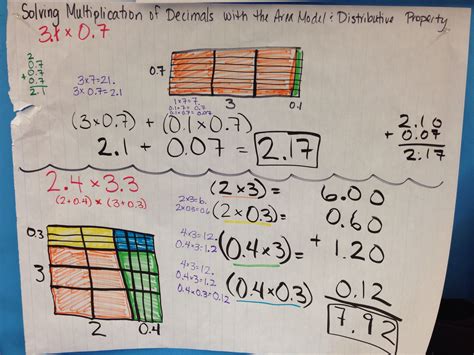 Solving Multiplication of Decimals with the Area Model & Distributive Property
3.1 x 0.7
2
0.7
0.7
+ 0.7
2.1
3x7=21.
3x0.7=2.1
0.7
1x7=7.
0.1x7=0.7
0.1x0.7=0.07
3
0.1
(3 x 0.7) + (0.1 x 0.7)
2.1 + 0.07 = 2.17
2.10
+ 0.07
2.17
2.4 x 3.3
(2+0.4) x (3+0.3)
0.3
3
2
0.4
2x3=6.
2x0.3=0.6
4x3=12.
0.4x3=1.2
4x3=12.
0.4x3=1.2
0.4x0.3=0.12
(2x3)= 6.00
(2x0.3)= 0.60
(0.4x3)= + 1.20
(0.4x0.3)= 0.12
7.92